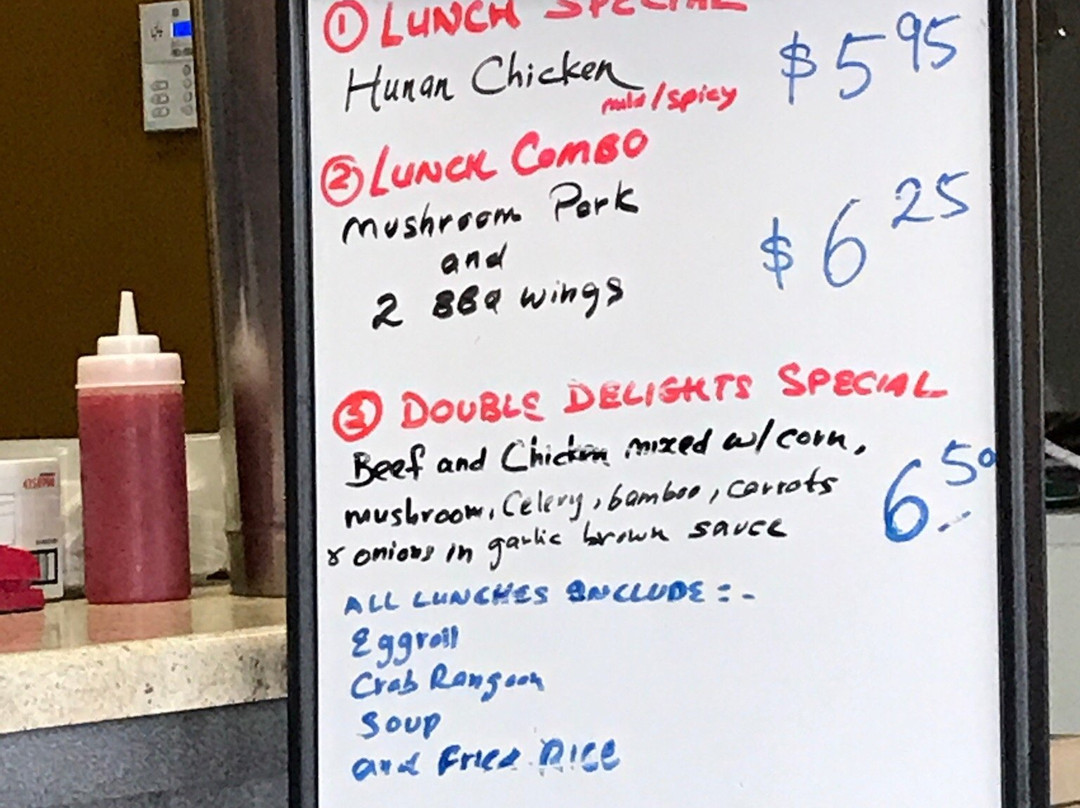 ① LUNCH SPECIAL
Hunan Chicken $5 95
mild/spicy
② LUNCH COMBO
Mushroom Pork
and
2 BBQ wings
$6 25
③ DOUBLE DELIGHTS SPECIAL
Beef and Chicken mixed w/corn,
mushroom, Celery, bamboo, carrots
& onions in garlic brown sauce
6.50
ALL LUNCHES INCLUDE :-
Eggroll
Crab Rangoon
Soup
and Fried RICE